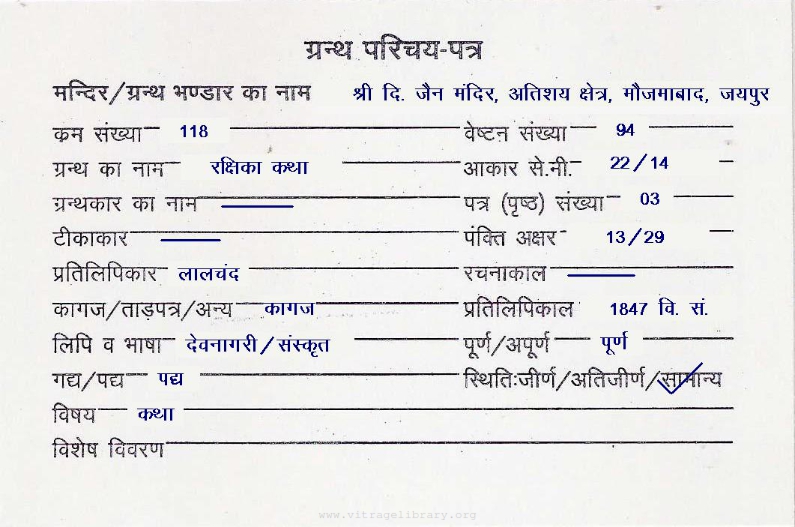 ग्रन्थ परिचय-पत्र
मन्दिर/ग्रन्थ भण्डार का नाम श्री दि. जैन मंदिर, अतिशय क्षेत्र, मौजमाबाद, जयपुर
कम संख्या 118 वेष्टन संख्या 94
ग्रन्थ का नाम रक्षिका कथा आकार से.नी. 22/14
ग्रन्थकार का नाम पत्र (पृष्ठ) संख्या 03
टीकाकार पंक्ति अक्षर 13/29
प्रतिलिपिकार लालचंद रचनाकाल
कागज/ताड़पत्र/अन्य कागज प्रतिलिपिकाल 1847 वि. सं.
लिपि व भाषा देवनागरी/संस्कृत पूर्ण/अपूर्ण पूर्ण
गद्य/पद्य पद्य स्थितिःजीर्ण/अतिजीर्ण/सामान्य
विषय कथा
विशेष विवरण
www.vitragelibrary.org